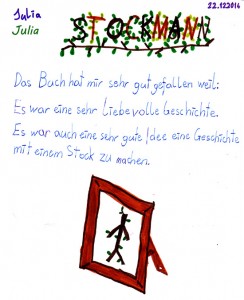 Julia
Julia
22.122014
STOCKMANN
Das Buch hat mir sehr gut gefallen weil:
Es war eine sehr Liebevolle Geschichte.
Es war auch eine sehr gute Idee eine Geschichte
mit einem Stock zu machen.